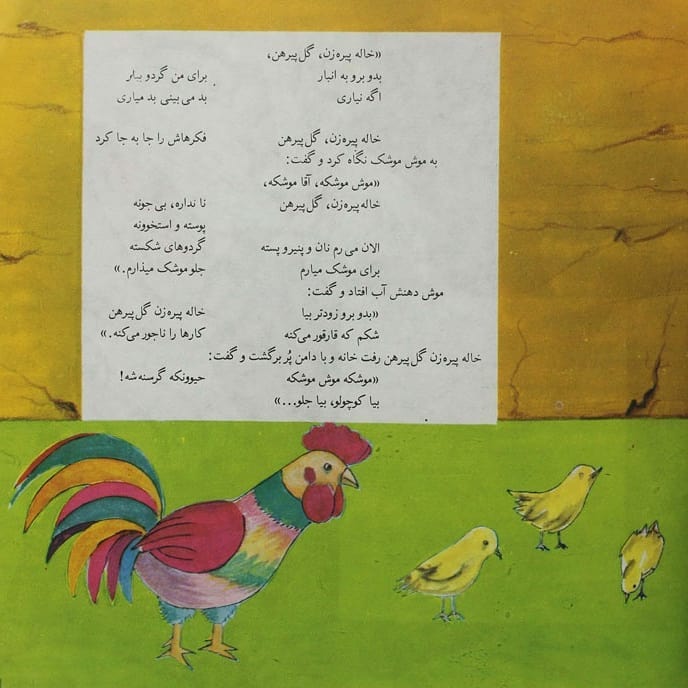 «خاله پیره‌زن، گل‌پیرهن،
بدو برو به انبار برای من گردو بیار
اگه نیاری بد می‌بینی بد میاری
خاله پیره‌زن، گل‌پیرهن فکرهاش را جا به جا کرد
به موش موشک نگاه کرد و گفت:
«موش موشکه، آقا موشکه،
خاله پیره‌زن، گل‌پیرهن نا نداره، بی‌جونه
پوسته و استخوونه
الان می‌رم نان و پنیر و پسته گردوهای شکسته
برای موشک میارم جلو موشک میذارم.»
موش دهنش آب افتاد و گفت:
«بدو برو زودتر بیا خاله پیره‌زن گل‌پیرهن
شکم که قارقور می‌کنه کارها را ناجور می‌کنه.»
خاله پیره‌زن گل‌پیرهن رفت خانه و با دامن پُر برگشت و گفت:
«موشکه موش موشکه حیوونکه گرسنه‌شه!
بیا کوچولو، بیا جلو...»